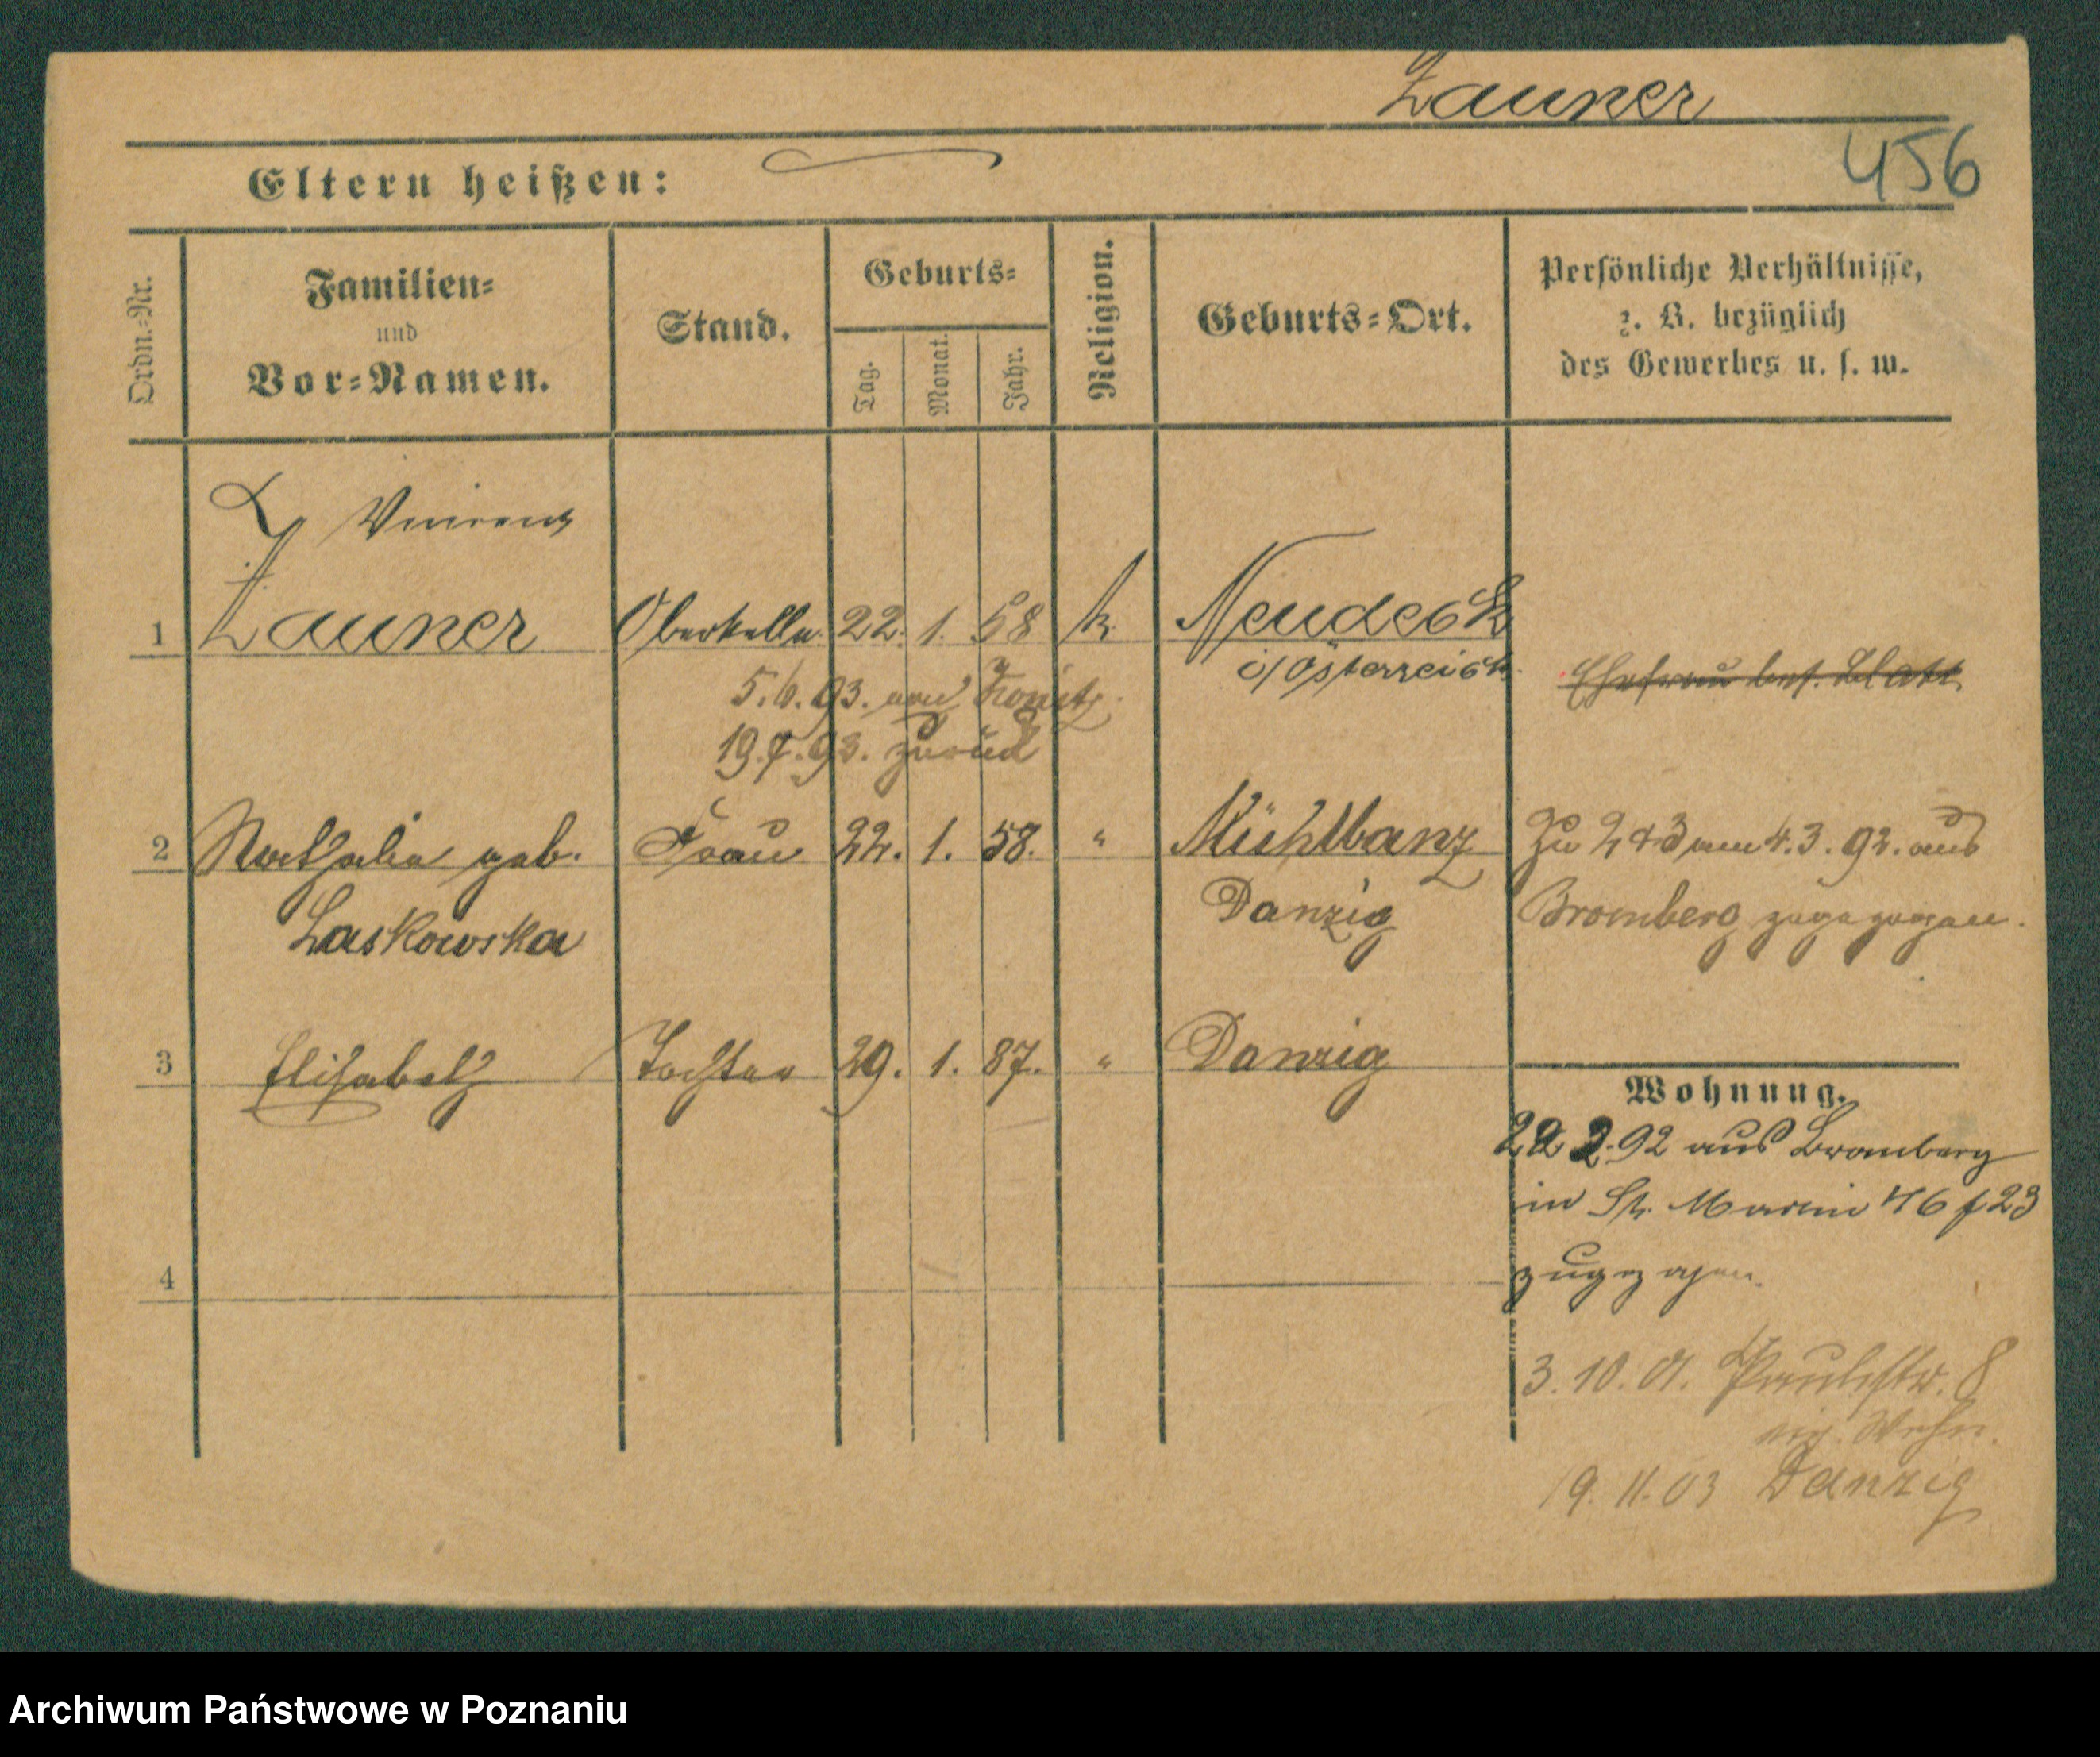 Zauner
456
Eltern heißen:
Ordn.-Nr.
Familien-
und
Vor-Namen.
Stand.
Geburts-
Tag.
Monat.
Jahr.
Religion.
Geburts-Ort.
Persönliche Verhältnisse,
z. B. bezüglich
des Gewerbes u. s. w.
Vincenz
1 Zauner Oberkelln. 22. 1. 58 k. Neudeck
i/Österreich
Ehefrau bes. Blatt
5.6.93. nach Konitz
19.7.93. zurück
2 Nathalia geb. Frau 22. 1. 58. " Mühlbanz Zu 2 + 3 am 4.3.92. aus
Laskowska Danzig Bromberg zugezogen.
3 Elisabeth Tochter 29. 1. 87. " Danzig
Wohnung.
2.92 aus Bromberg
in St. Martin 46 f 23
zugezogen.
4
3.10.01. Paulistr. 8
Wohn.
19.11.03 Danzig
Archiwum Państwowe w Poznaniu